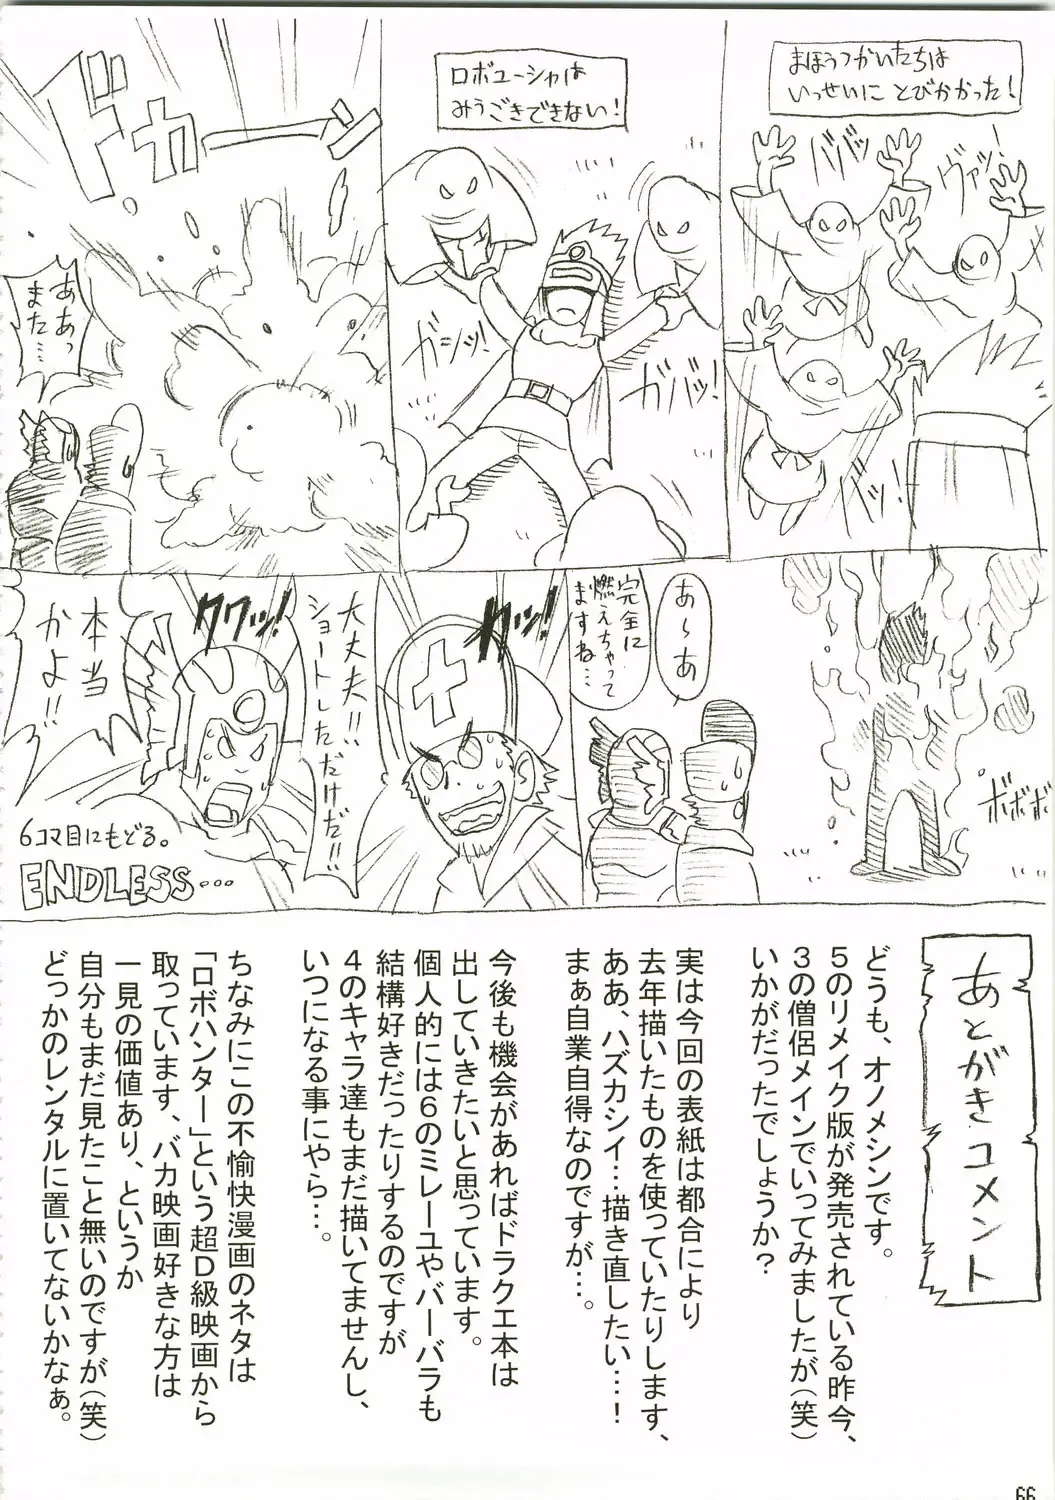 まほうつかいたちは
いっせいに とびかかった！
ババッ
ヴァッ！
バッ！
ロボユーシャは
みうごきできない！
ガシッ！
ガバッ！
ドカーーン
ああっ
また…
ボボボ
あ〜あ
完全に
燃えちゃって
ますね…
クワッ！
大丈夫！！
ショートしただけだ！！
クワッ！
本当
かよ！！
6コマ目にもどる。
ENDLESS…
あとがきコメント
どうも、オノメシンです。
５のリメイク版が発売されている昨今、
３の僧侶メインでいってみましたが（笑）
いかがだったでしょうか？
実は今回の表紙は都合により
去年描いたものを使っていたりします、
ああ、ハズカシイ…描き直したい…！
まぁ自業自得なのですが…。
今後も機会があればドラクエ本は
出していきたいと思っています。
個人的には６のミレーユやバーバラも
結構好きだったりするのですが
４のキャラ達もまだ描いてませんし、
いつになる事にやら…。
ちなみにこの不愉快漫画のネタは
「ロボハンター」という超Ｄ級映画から
取っています、バカ映画好きな方は
一見の価値あり、というか
自分もまだ見たこと無いのですが（笑）
どっかのレンタルに置いてないかなぁ。
66